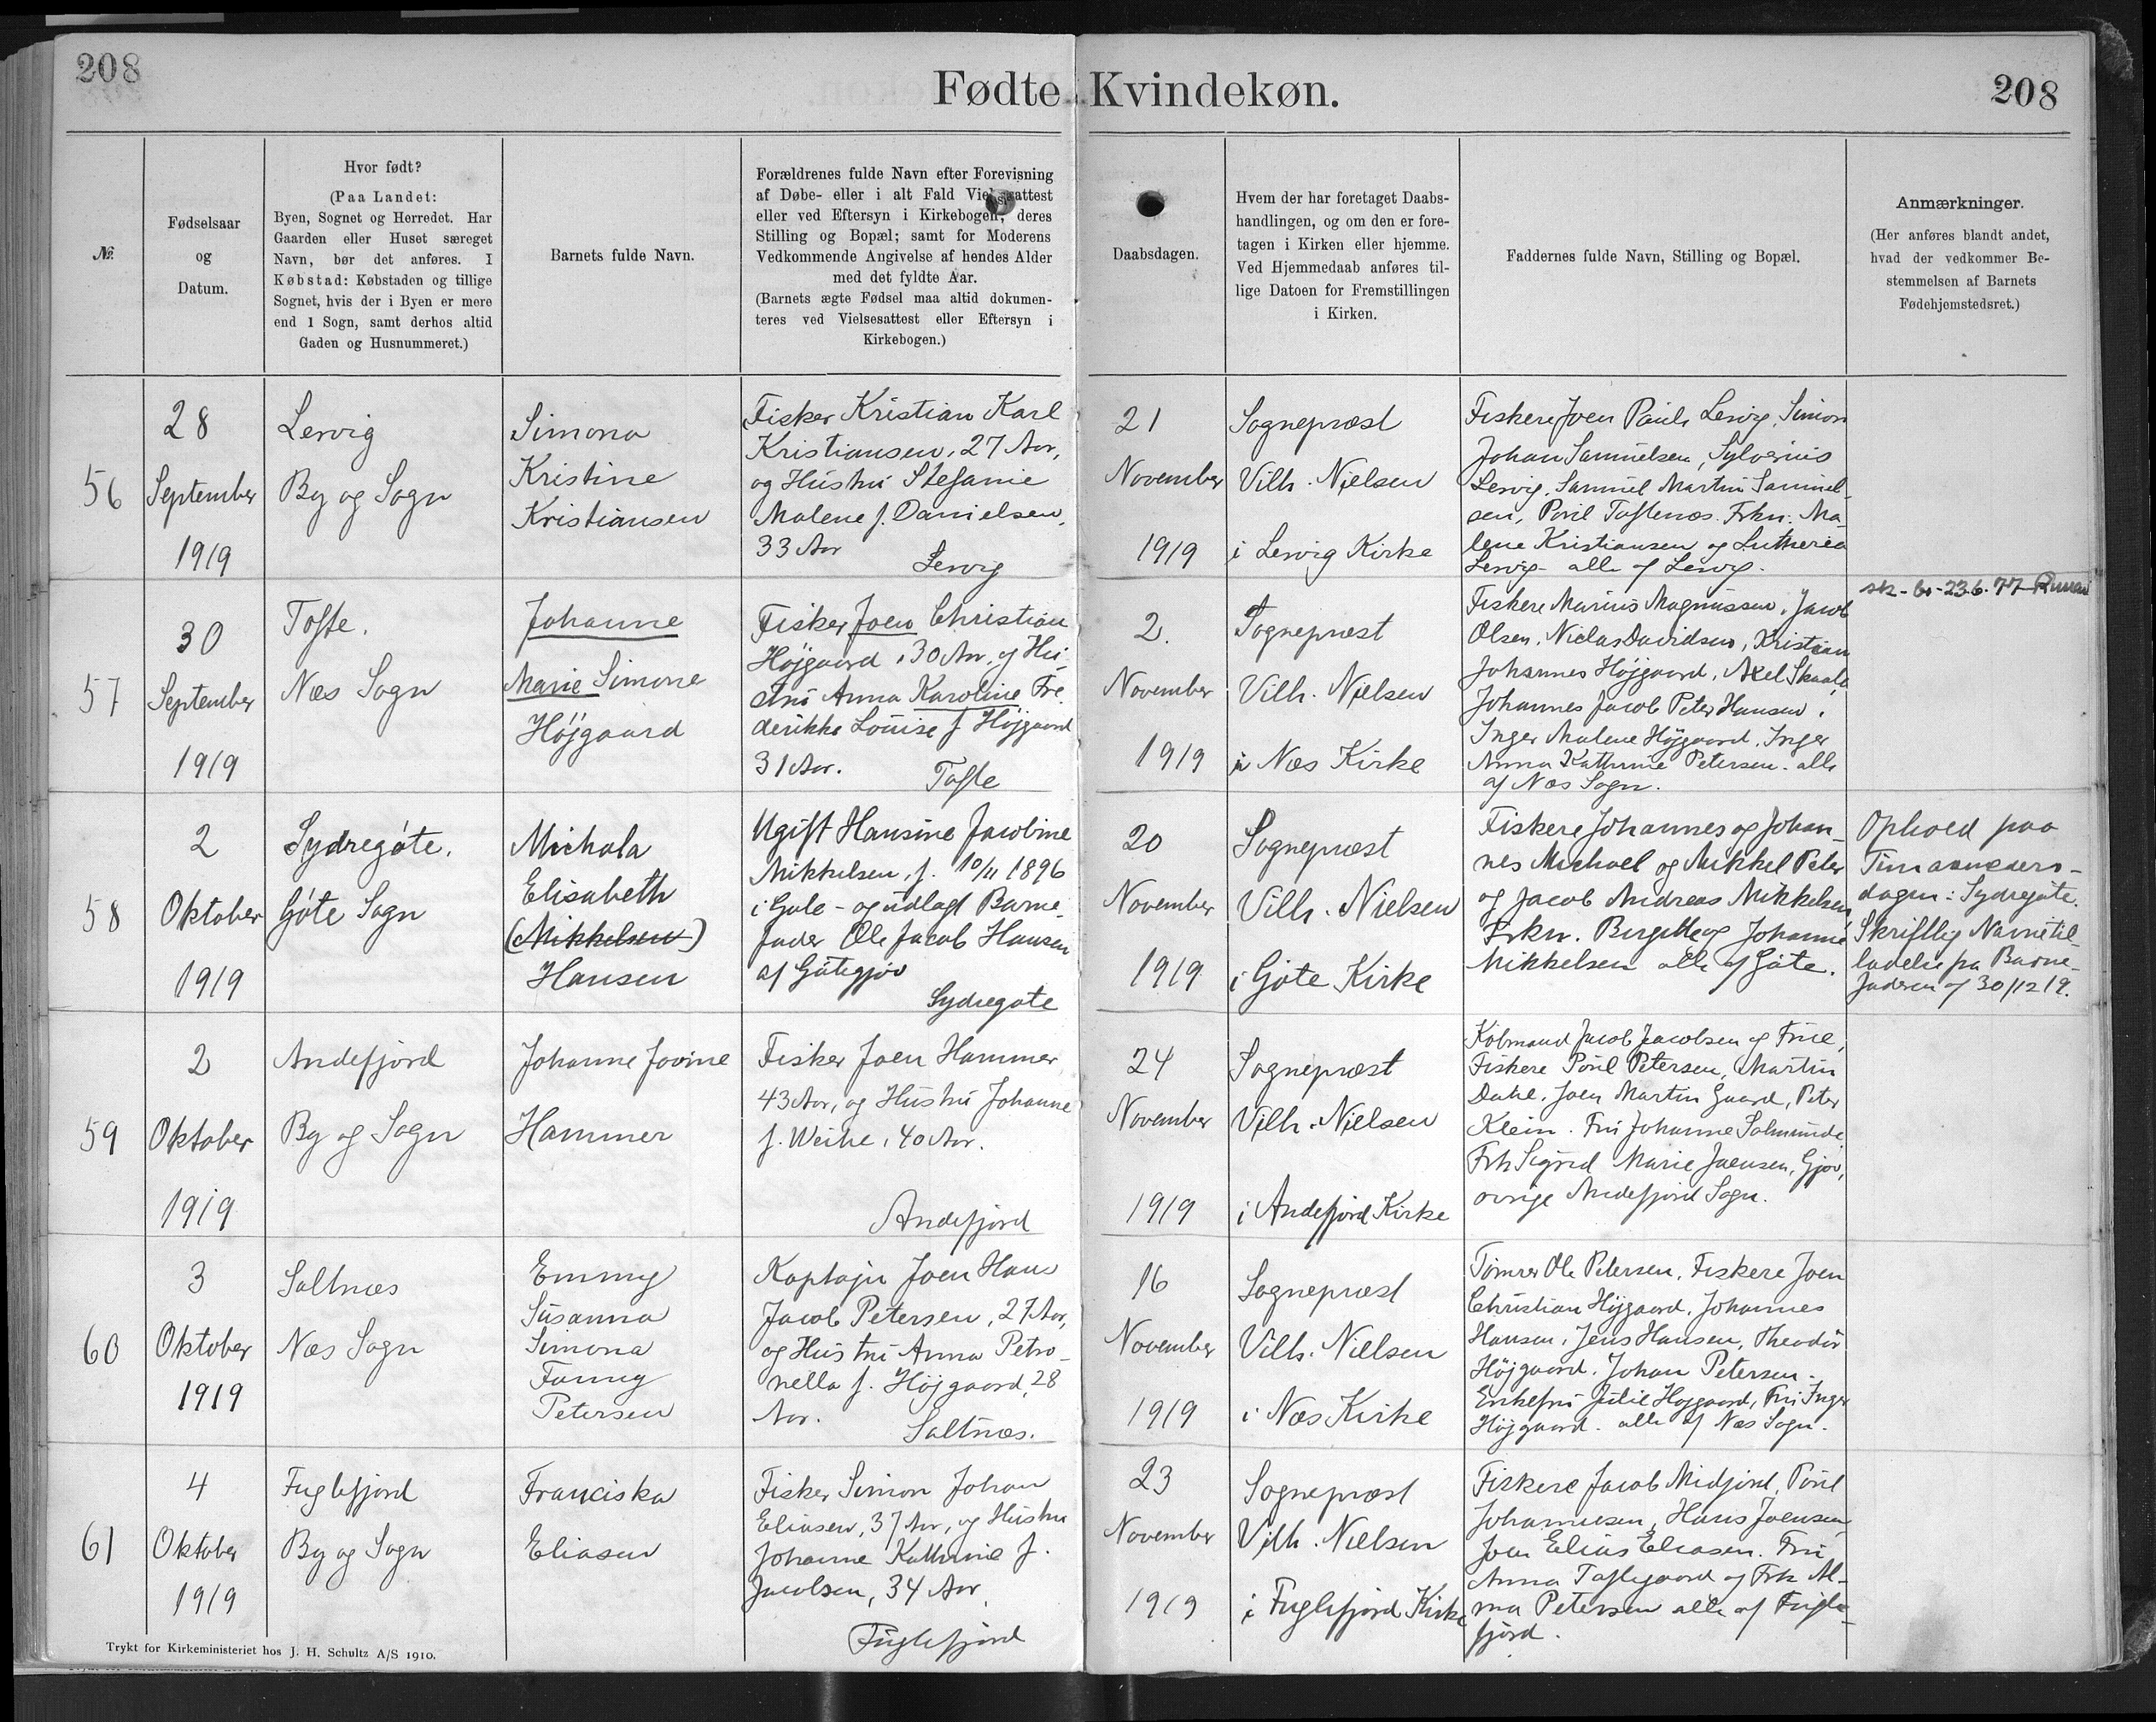 208
Fødte Kvindekøn.
208
№
Fødselsaar
og
Datum.
Hvor født?
(Paa Landet:
Byen, Sognet og Herredet. Har
Gaarden eller Huset særeget
Navn, bør det anføres. I
Købstad: Købstaden og tillige
Sognet, hvis der i Byen er mere
end 1 Sogn, samt derhos altid
Gaden og Husnummeret.)
Barnets fulde Navn.
Forældrenes fulde Navn efter Forevisning
af Døbe- eller i alt Fald Vielsesattest
eller ved Eftersyn i Kirkebogen; deres
Stilling og Bopæl; samt for Moderens
Vedkommende Angivelse af hendes Alder
med det fyldte Aar.
(Barnets ægte Fødsel maa altid dokumen-
teres ved Vielsesattest eller Eftersyn i
Kirkebogen.)
Daabsdagen.
Hvem der har foretaget Daabs-
handlingen, og om den er fore-
tagen i Kirken eller hjemme.
Ved Hjemmedaab anføres til-
lige Datoen for Fremstillingen
i Kirken.
Faddernes fulde Navn, Stilling og Bopæl.
Anmærkninger.
(Her anføres blandt andet,
hvad der vedkommer Be-
stemmelsen af Barnets
Fødehjemstedsret.)
56
28
September
1919
Lervig
By og Sogn
Simona
Kristine
Kristiansen
Fisker Kristian Karl
Kristiansen, 27 Aar,
og Hustru Stefanie
Malene f. Danielsen,
33 Aar
Lervig
21
November
1919
Sognepræst
Vilh. Nielsen
i Lervig Kirke
Fiskere Joen Pauli Lervig, Simon
Johan Samuelsen, Sylverius
Lervig, Samuel Martin Samuel-
sen, Poul Toftenæs. Frkn. Ma-
lene Kristiansen og Lutheria
Lervig - alle af Lervig.
57
30
September
1919
Tofte.
Næs Sogn
Johanne
Marie Simone
Højgaard
Fisker Joen Christian
Højgaard, 30 Aar, og Hu-
stru Anna Karoline Fre-
derikke Louise f. Højgaard
31 Aar.
Tofte
2.
November
1919
Sognepræst
Vilh. Nielsen
i Næs Kirke
Fiskere Marius Magnussen, Jacob
Olsen, Niclas Davidsen, Kristian
Johannes Højgaard, Axel Skaale,
Johannes Jacob Peter Hansen,
Inger Malene Højgaard, Inger
Anna Kathrine Petersen. alle
af Næs Sogn.
23.6.77
58
2
Oktober
1919
Sydregøte.
Gøte Sogn
Michala
Elisabeth
(Mikkelsen)
Hansen
Ugift Hansine Jacobine
Mikkelsen, f. 10/11 1896
i Gøte - og udlagt Barne-
fader Ole Jacob Hansen
af Gøtegjov
Sydregøte
20
November
1919
Sognepræst
Vilh. Nielsen
i Gøte Kirke
Fiskere Johannes og Johan-
nes Michael og Mikkel Peter
og Jacob Andreas Mikkelsen
Frkn. Birgitte og Johanne
Mikkelsen alle af Gøte.
Ophold paa
dagen: Sydregøte.
Skriftlig Navnetil-
ladelse fra Barne-
faderen af 30/12 19.
59
2
Oktober
1919
Andefjord
By og Sogn
Johanne Jovine
Hammer
Fisker Joen Hammer
43 Aar, og Hustru Johanne
f. Weihe, 40 Aar.
Andefjord
24
November
1919
Sognepræst
Vilh. Nielsen
i Andefjord Kirke
Købmand Jacob Jacobsen og Frue,
Fiskere Poul Petersen, Martin
Dahl, Joen Martin Gaard, Peter
Klein. Fru Johanne
Frk Sigrid Marie Joensen, Gjov,
øvrige Andefjord Sogn.
60
3
Oktober
1919
Saltnæs
Næs Sogn
Emmy
Susanna
Simona
Fanny
Petersen
Kaptajn Joen Hans
Jacob Petersen, 27 Aar,
og Hustru Anna Petro-
nella f. Højgaard, 28
Aar.
Saltnæs.
16
November
1919
Sognepræst
Vilh. Nielsen
i Næs Kirke
Tømrer Ole Petersen, Fiskere Joen
Christian Højgaard, Johannes
Hansen, Jens Hansen, Theodor
Højgaard, Johan Petersen.
Enkefru Julie Højgaard, Fru Inger
Højgaard. alle af Næs Sogn.
61
4
Oktober
1919
Fuglefjord
By og Sogn
Franciska
Eliasen
Fisker Simon Johan
Eliasen, 37 Aar, og Hustru
Johanne Kathrine f.
Jacobsen, 34 Aar,
Fuglefjord
23
November
1919
Sognepræst
Vilh. Nielsen
i Fuglefjord Kirke
Fiskere Jacob Midjord, Poul
Johannesen, Hans Joensen
Joen Elias Eliasen. Fru
Anna Toftegaard og Frk Al-
ma Petersen alle af Fugle-
fjord.
Trykt for Kirkeministeriet hos J. H. Schultz A/S 1910.